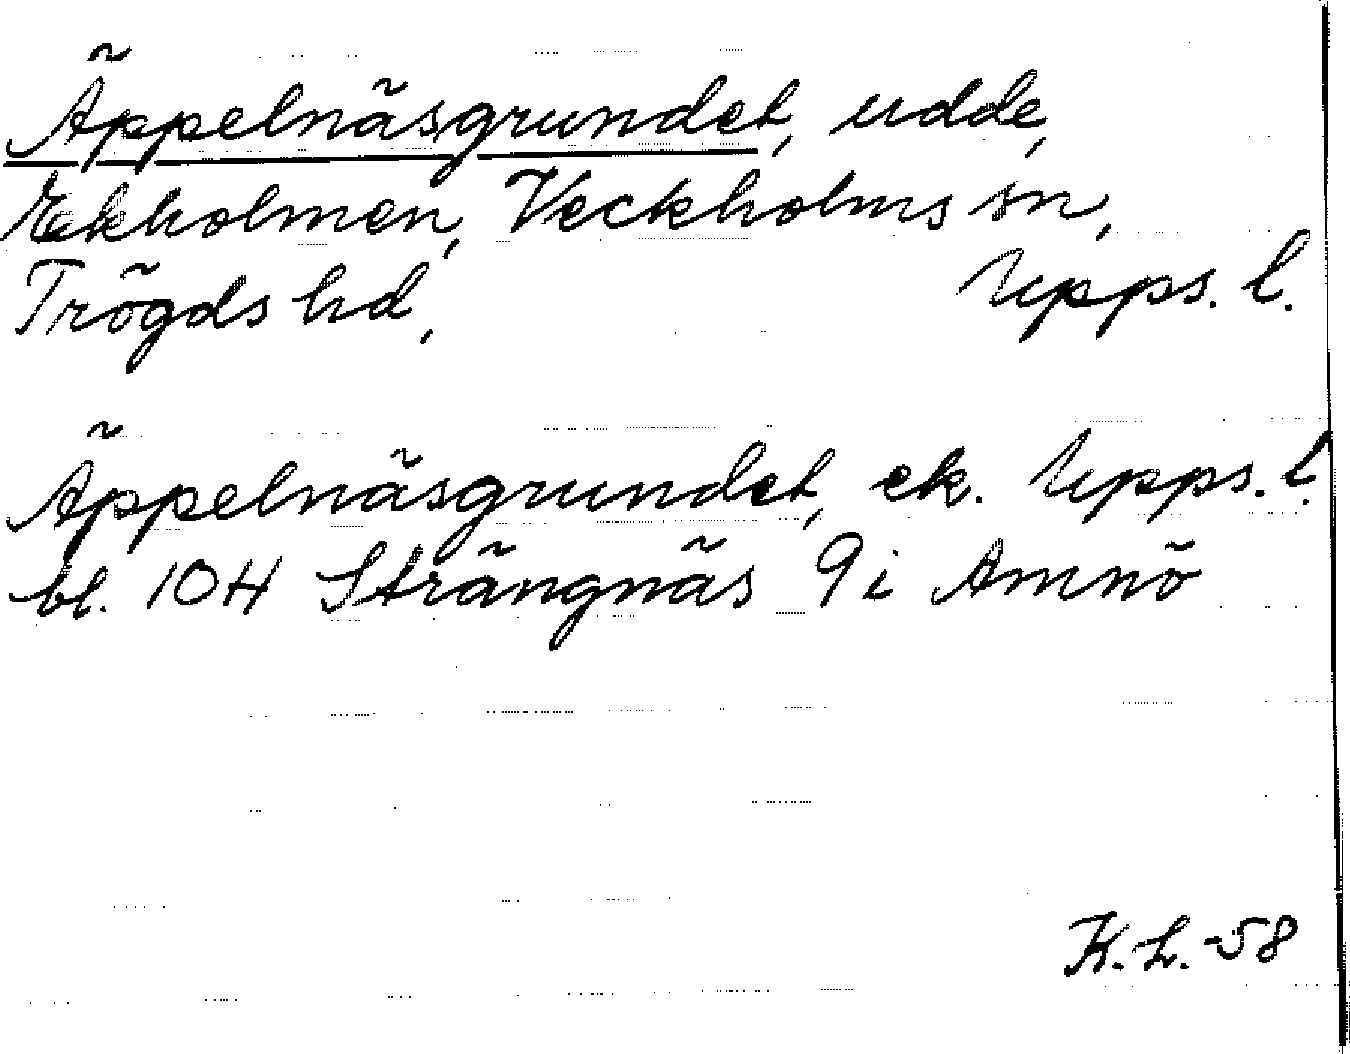 Äppelnäsgrundet, udde,
Ekholmen, Veckholms sn,
Trögds hd, Upps. l.
Äppelnäsgrundet, ek. Upps. l.
bl. 10H Strängnäs 9i Amnö
K.L. -58